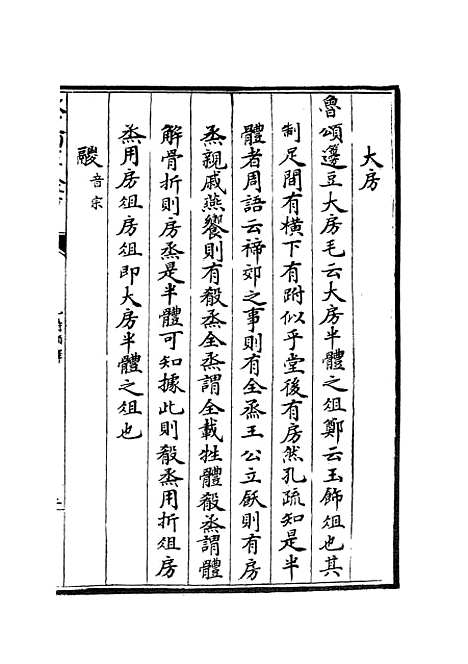 大房
魯頌籩豆大房毛云大房半體之俎鄭云玉飾俎也其
制足間有橫下有跗似乎堂後有房然孔疏知是半
體者周語云禘郊之事則有全烝王公立飫則有房
烝親戚燕饗則有殽烝全烝謂全載牲體殽烝謂體
解骨折則房烝是半體可知據此則殽烝用折俎房
烝用房俎房俎即大房半體之俎也
鬷音宗